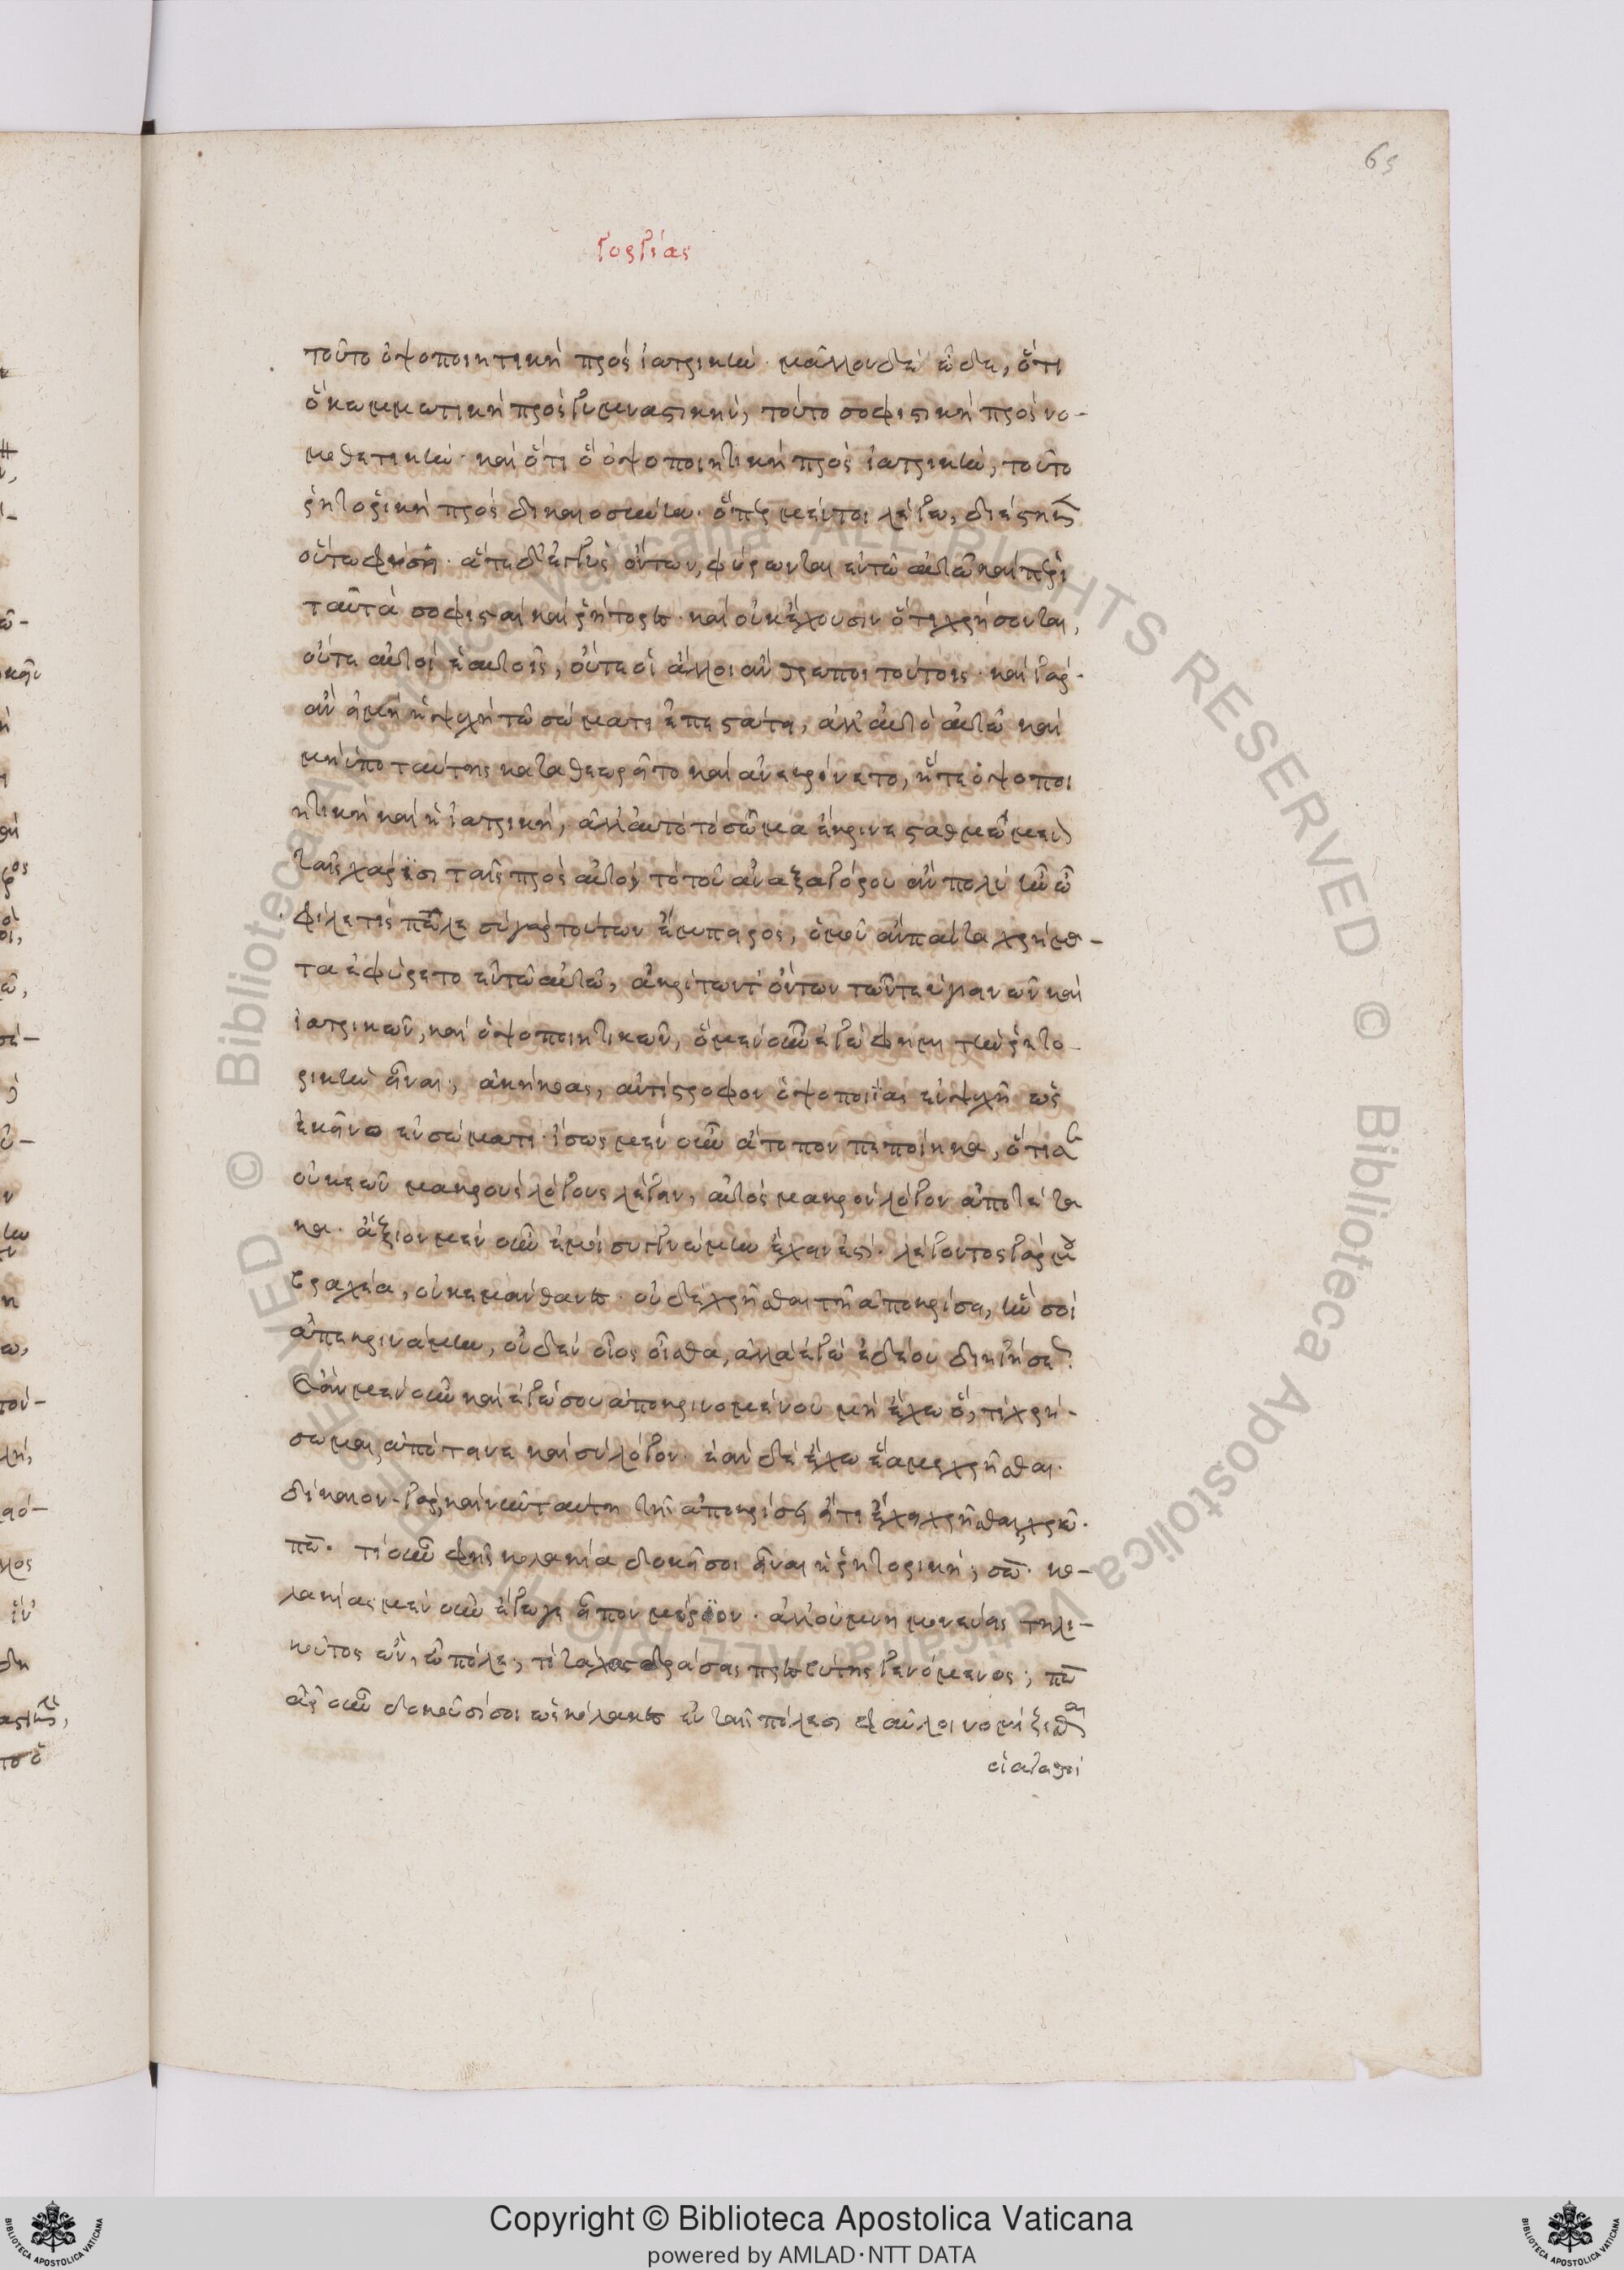 65
γοργίας
τοῦτο ὀψοποιητικὴ πρὸς ἰατρικήν· μᾶλλον δὲ ὧδε, ὅτι
ὃ κωμμωτικὴ πρὸς γυμναστικήν, τοῦτο σοφιστικὴ πρὸς νο-
μοθετικήν· καὶ ὅτι ὃ ὀψοποιητικὴ πρὸς ἰατρικήν, τοῦτο
ῥητορικὴ πρὸς δικαιοσύνην· ὅπερ μέντοι λέγω, διέστηκε
οὕτω φύσει· ἅτε δ' ἐγγὺς ὄντων, φύρωνται ἐν τῶ αὐτῶ καὶ περὶ
ταῦτα σοφισταὶ καὶ ῥήτορες· καὶ οὐκ ἔχουσιν ὅτι χρήσονται,
οὔτε αὐτοὶ ἑαυτοῖς, οὔτε οἱ ἄλλοι ἄνθρωποι τούτοις· καὶ γὰρ
ἂν εἰ μὴ ἡ ψυχὴ τῶ σώματι ἐπεστάτει, ἀλλ' αὐτὸ αὑτῶ καὶ
μὴ ὑπὸ ταύτης κατεθεωρεῖτο καὶ ἀνεκρίνετο, ἥτε ὀψοποι
ητικὴ καὶ ἡ ἰατρική, ἀλλ' αὐτὸ τὸ σῶμα ἔκρινε σταθμώμενον
ταῖς χάρισι ταῖς πρὸς αὐτό, τὸ τοῦ ἀναξαγόρου ἂν πολὺ ἦν ὦ
φίλε πῶλε σὺ γὰρ τούτων ἔμπειρος, ὁμοῦ ἂν πάντα χρήμα-
τα ἐφύρετο ἐν τῶ αὐτῶ, ἀκρίτων ὄντων τῶν τε ὑγιεινῶν καὶ
ἰατρικῶν, καὶ ὀψοποιητικῶν, ὃ μὲν οὖν ἐγώ φημι τὴν ῥητο-
ρικὴν εἶναι, ἀκήκοας, ἀντίστροφον ὀψοποιΐας ἐν ψυχῆ ὡς
ἐκεῖνο ἐν σώματι· ἴσως μὲν οὖν ἄτοπον πεποίηκα, ὅτι σε
οὐκ ἐῶν μακροὺς λόγους λέγειν, αὐτὸς μακρὸν λόγον ἀποτέτα
κα· ἄξιον μὲν οὖν ἐμοὶ συγγνώμην ἔχειν ἐστί· λέγοντος γάρ μου
βραχέα, οὐκ ἐμάνθανες· οὐδὲ χρῆσθαι τῆ ἀποκρίσει, ἣν σοὶ
ἀπεκρινάμην, οὐδὲν οἷος οἶσθα, ἀλλὰ ἐγὼ ἐδέου διηγήσεως·
ἐὰν μὲν οὖν καὶ ἐγὼ σου ἀποκρινομένου μὴ ἔχω ὅ, τι χρή-
σωμαι, ἀπότεινε καὶ σὺ λόγον· ἐὰν δὲ ἔχω ἔα με χρῆσθαι·
δίκαιον γάρ, καὶ νῦν ταύτη τῆ ἀποκρίσει εἴ τι ἔχεις χρῆσθαι, χρῶ·
πῶ· τί οὖν φής κολακεία δοκεῖ σοι εἶναι ἡ ῥητορική; σω· κο-
λακείας μὲν οὖν ἔγωγε εἶπον μόριον· ἀλλ' οὐ μνημονεύεις τηλι-
κοῦτος ὤν, ὦ πῶλε; τί τάχα δράσεις πρεσβύτης γενόμενος; πῶ
ἆρ' οὖν δοκοῦσί σοι ὡς κόλακες ἐν ταῖς πόλεσι φαῦλοι νομίζεσθαι
οἱ ἀγαθοὶ
Copyright © Biblioteca Apostolica Vaticana
powered by AMLAD·NTT DATA